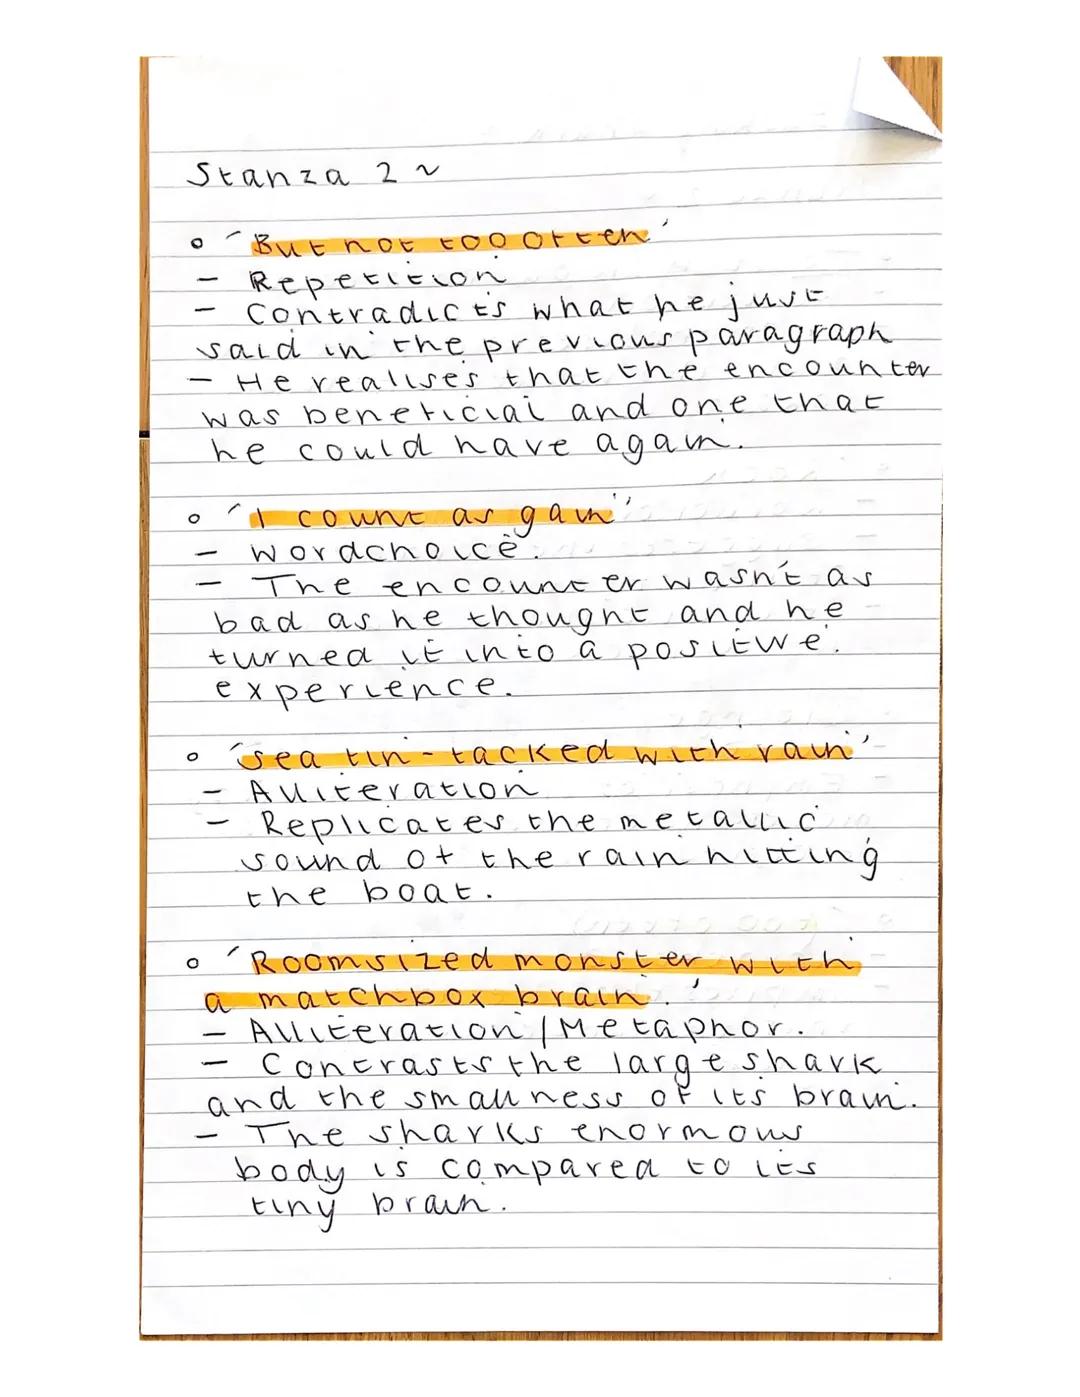 Stanza 2 ~
o 'But not too often'
- Repetition
- Contradicts what he just
said in the previous paragraph
- He realises that the encounter
was beneficial and one that
he could have again.
o 'I count as gain'
- Wordchoice.
- The encounter wasn't as
bad as he thought and he
turned it into a positive
experience.
o 'sea tin-tacked with rain'
- Alliteration
- Replicates the metallic
sound of the rain hitting
the boat.
o 'Roomsized monster with
a matchbox brain.'
- Alliteration/Metaphor.
- Contrasts the large shark
and the smallness of its brain.
- The sharks enormous
body is compared to its
tiny brain.